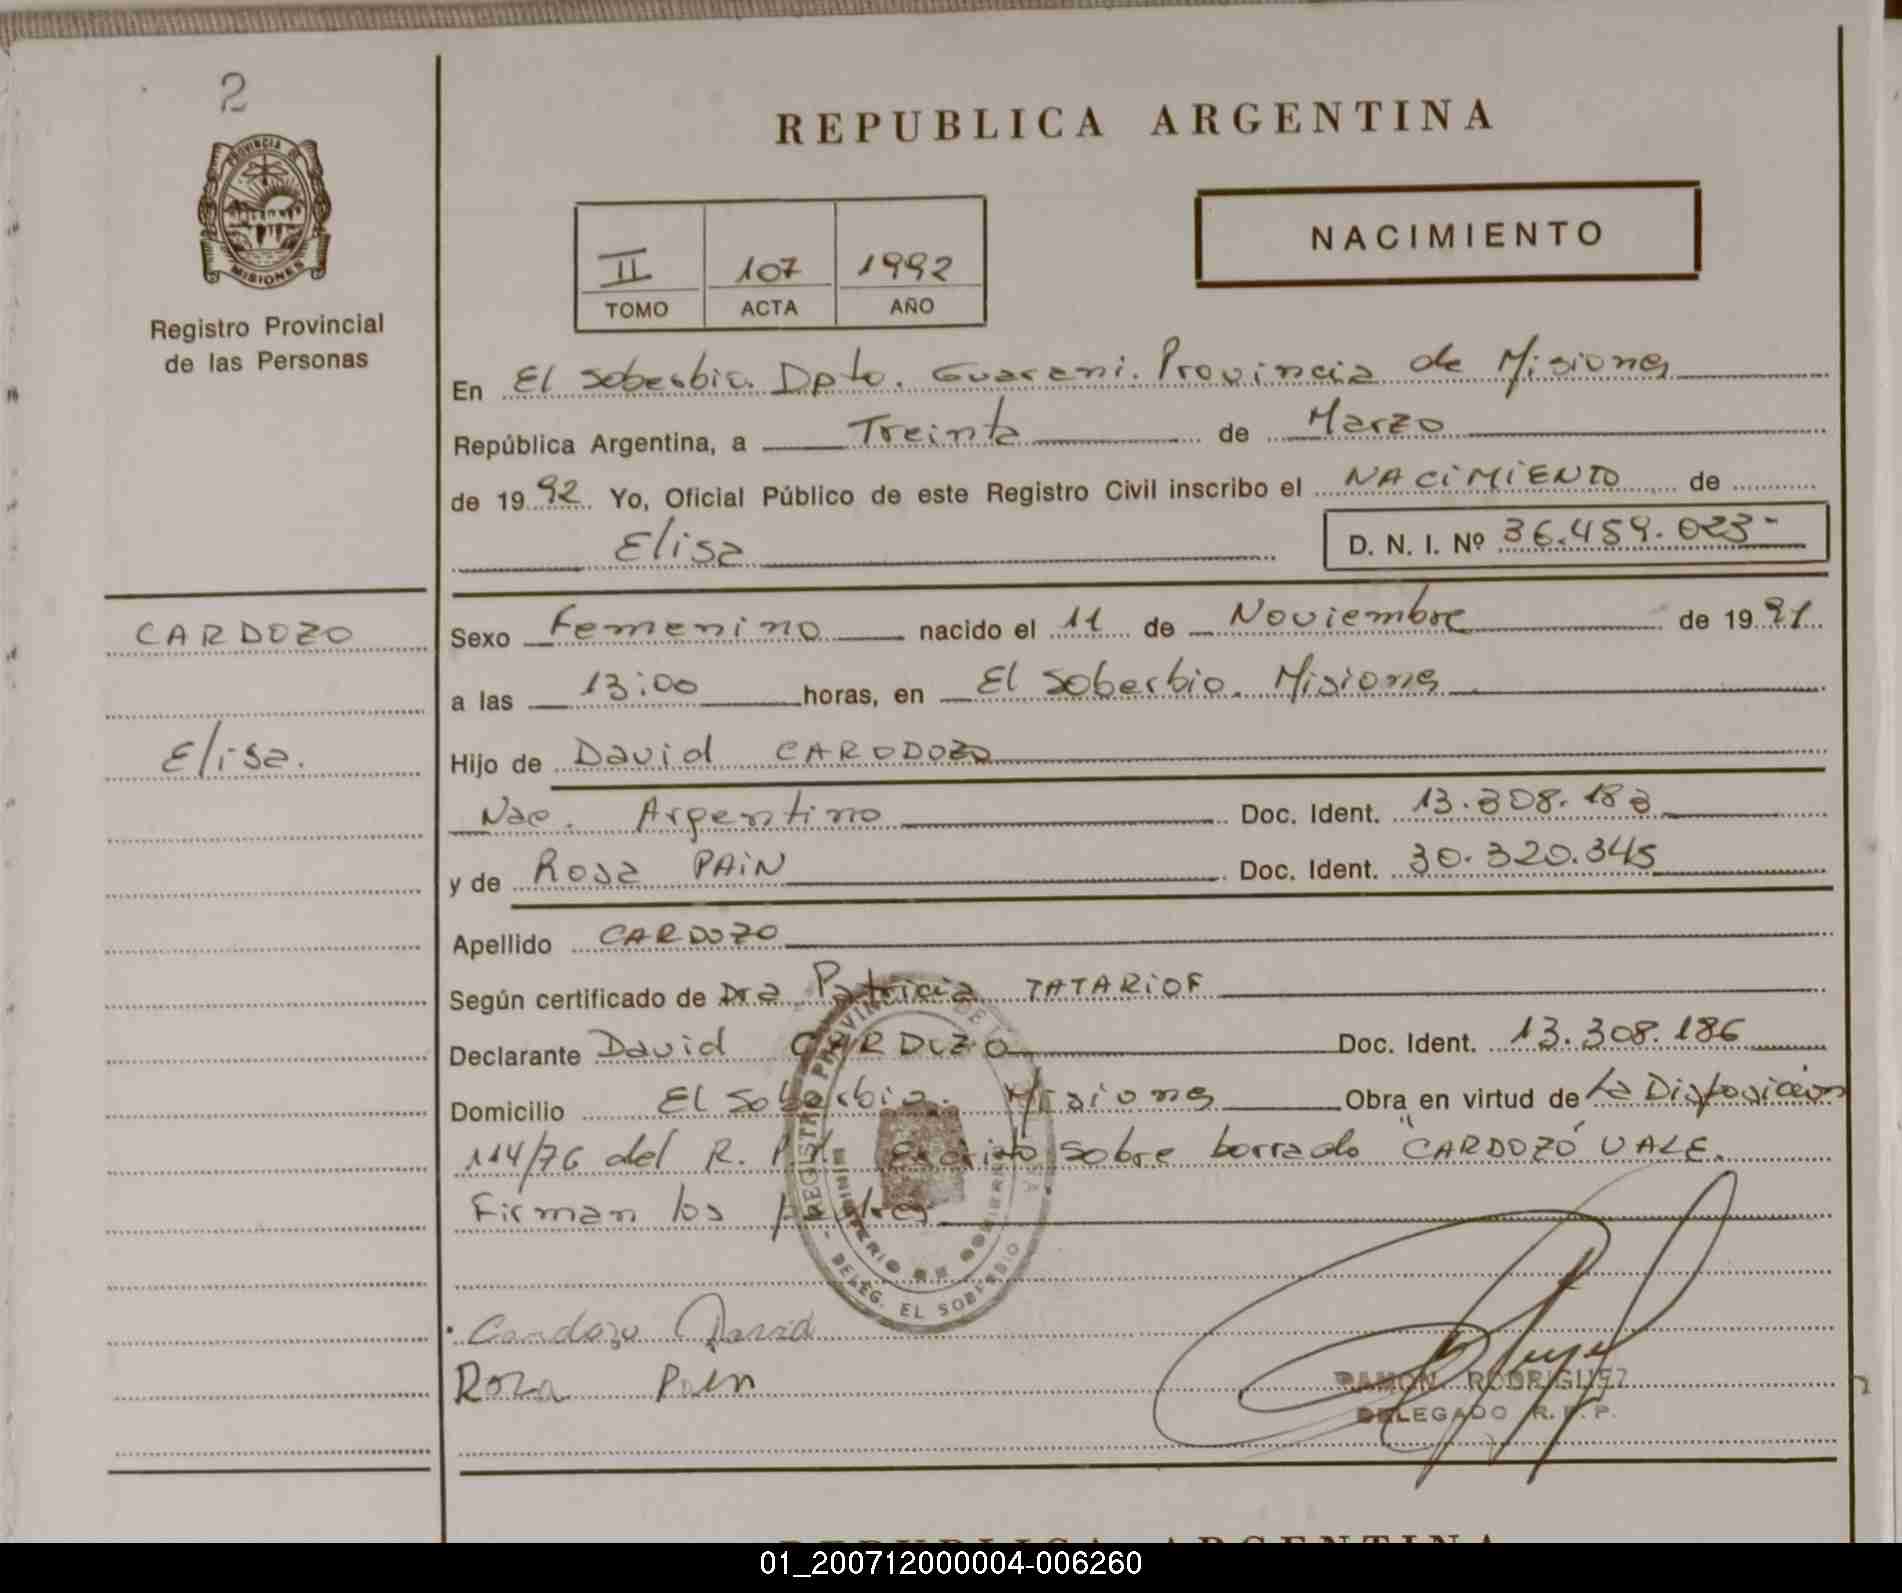 2
PROVINCIA DE
MISIONES
Registro Provincial
de las Personas
CARDOZO
Elisa.
REPUBLICA ARGENTINA
II 107 1992
TOMO ACTA AÑO
NACIMIENTO
En El Soberbio. Dpto. Guarani. Provincia de Misiones
República Argentina, a Treinta de Marzo
de 1992 Yo, Oficial Público de este Registro Civil inscribo el NACIMIENTO de
Elisa D. N. I. Nº 36.459.023-
Sexo Femenino nacido el 11 de Noviembre de 1991
a las 13:00 horas, en El Soberbio. Misiones
Hijo de David CARODOZO
Nac. Argentino Doc. Ident. 13.308.183
y de Rosa PAiN Doc. Ident. 30.320.345
Apellido CARDOZO
Según certificado de Dra Patricia TATARiOF
Declarante David CARDOZO Doc. Ident. 13.308.186
Domicilio El Soberbio. Misiones Obra en virtud de La Disposición
114/76 del R. P. Escrito sobre borrado "CARDOZO" VALE.
Firman los padres
REGISTRO PROVINCIAL DE
MINISTERIO DE GOBIERNO
DELEG. EL SOBERBIO
Cardozo David
Roza Pain
RAMON RODRIGUEZ
DELEGADO R.P.P.
REPUBLICA ARGENTINA
01_200712000004-006260